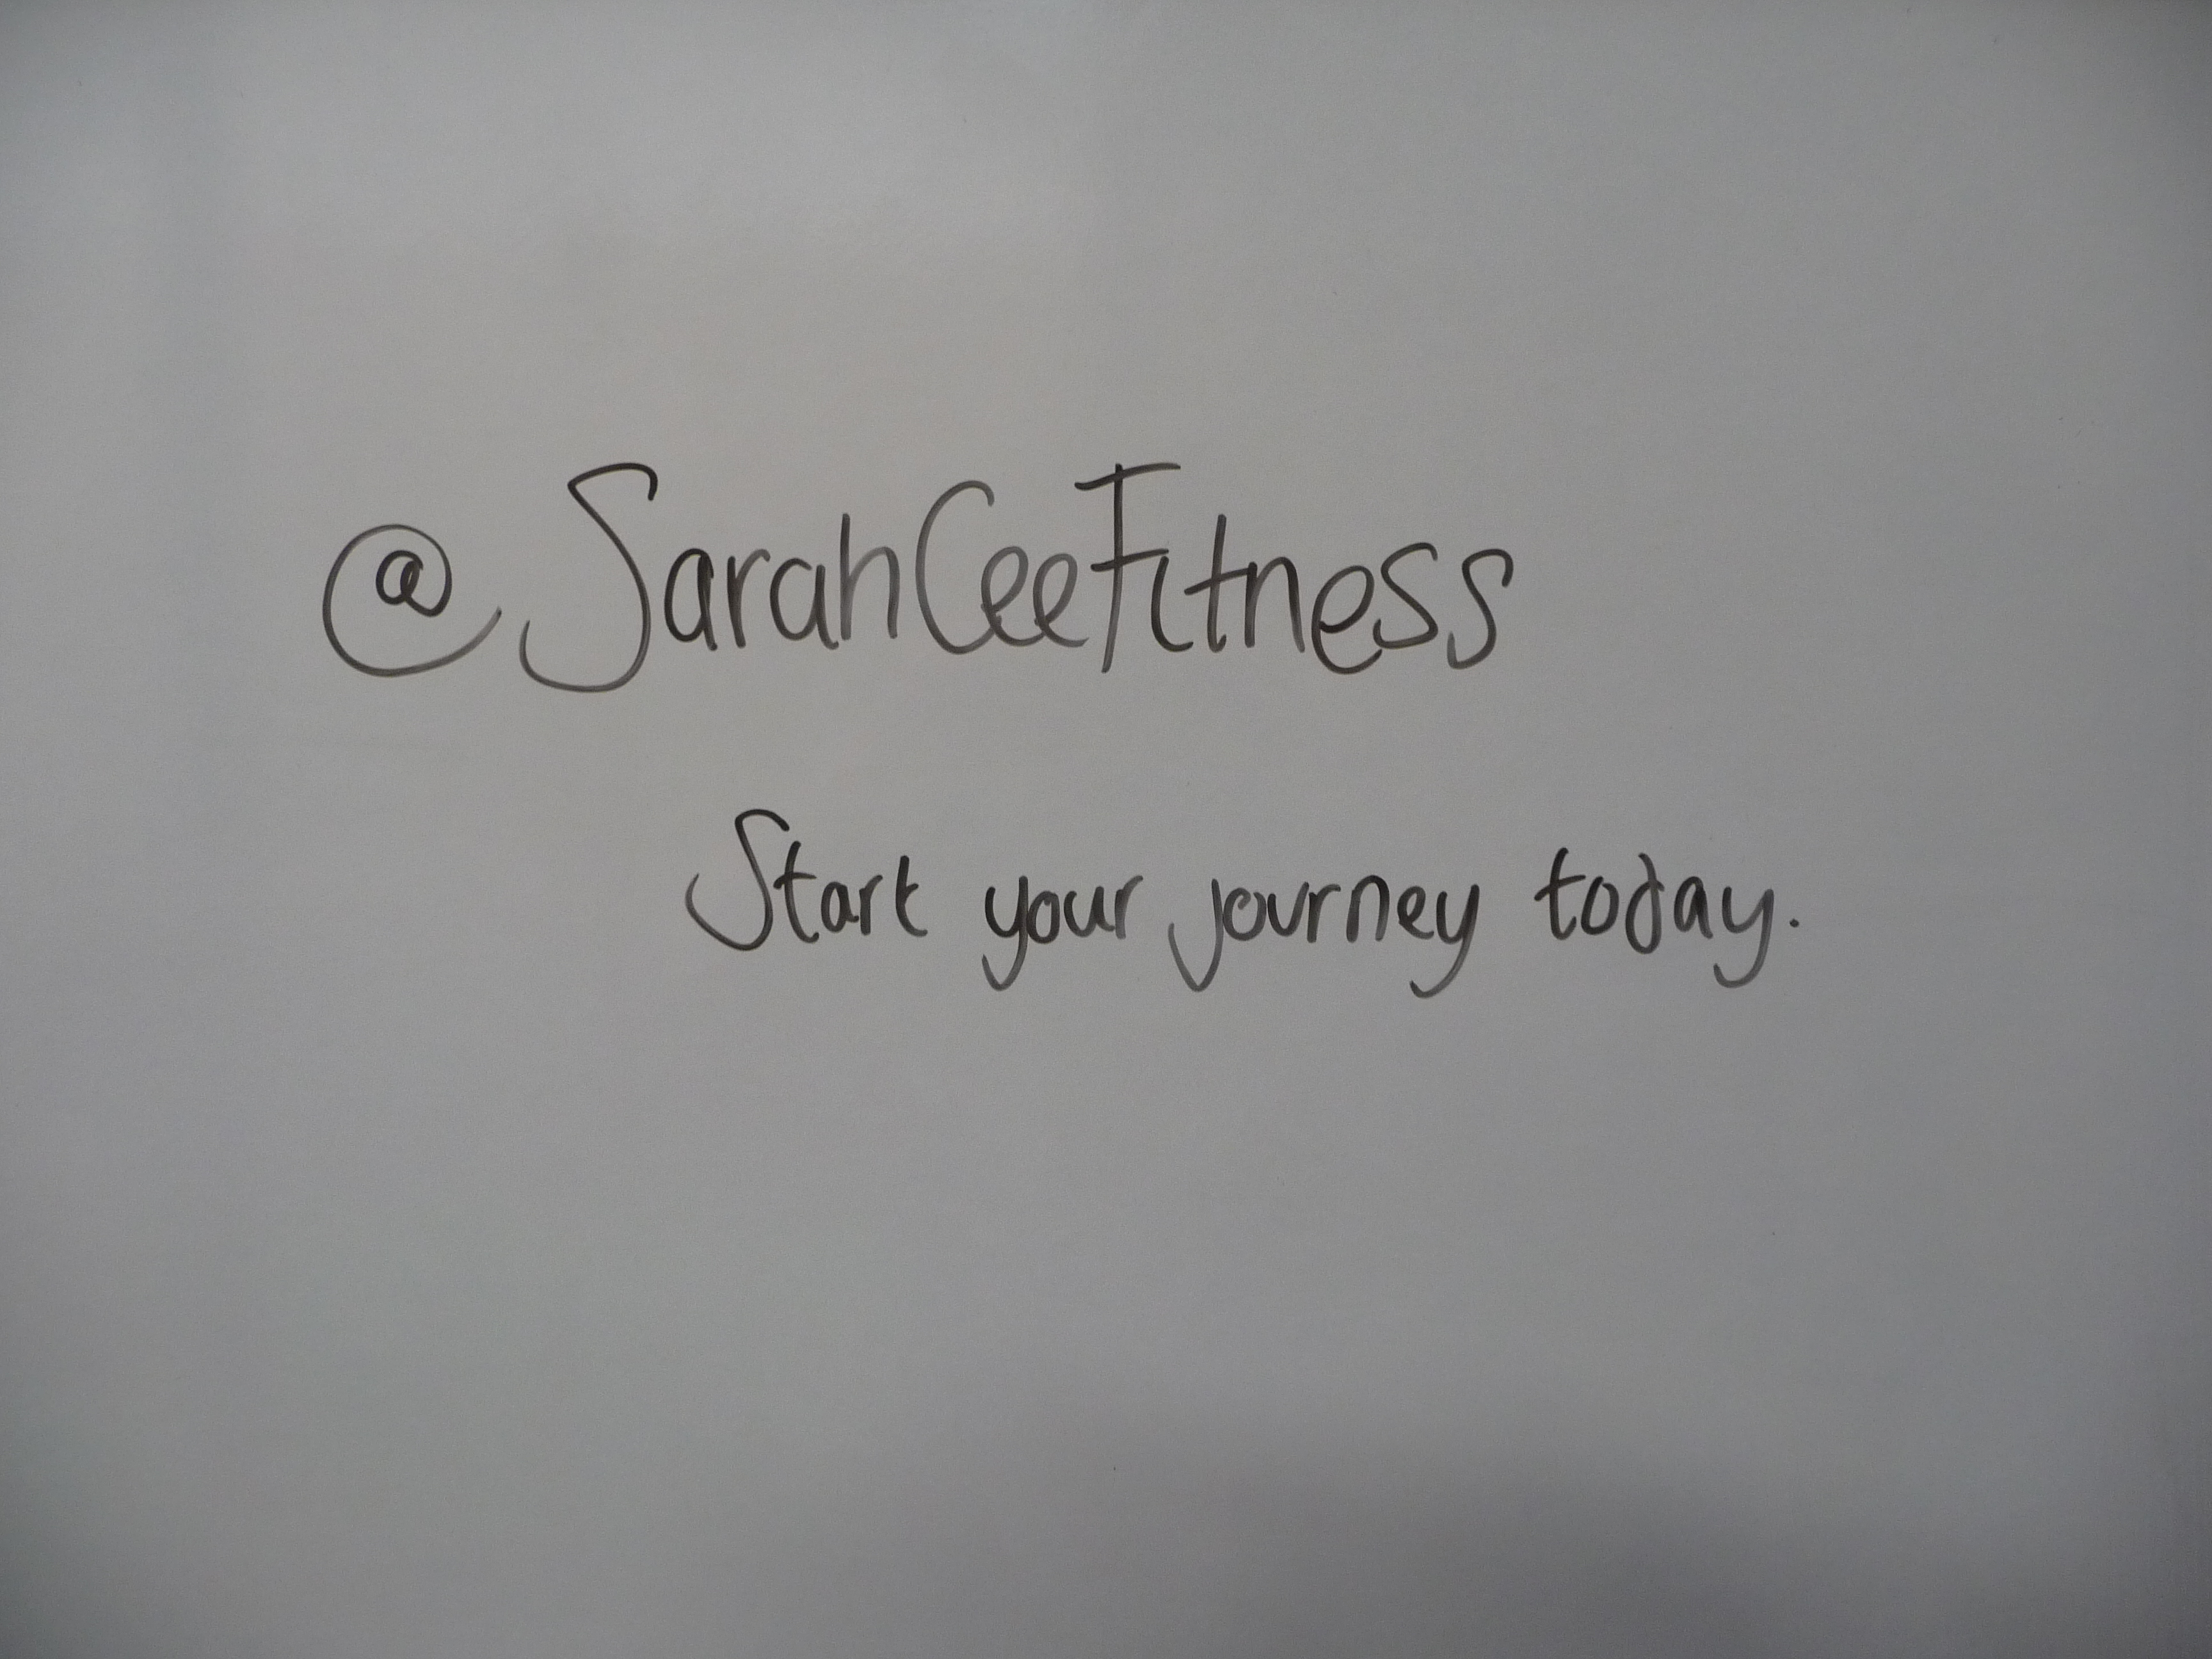 @SarahCeeFitness
Start your journey today.